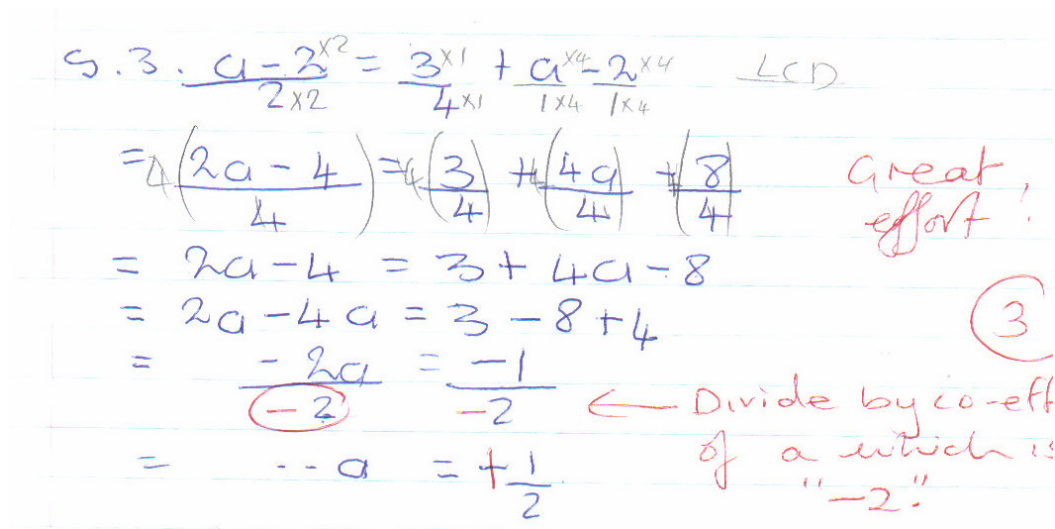 5.3. a - 2 ×2 / 2 ×2 = 3 ×1 / 4 ×1 + a ×4 / 1 ×4 - 2 ×4 / 1 ×4 LCD
= 4(2a - 4 / 4) = 4(3 / 4) + 4(4a / 4) - 4(8 / 4) Great effort!
= 2a - 4 = 3 + 4a - 8
= 2a - 4a = 3 - 8 + 4 3
= - 2a / - 2 = - 1 / - 2 ← Divide by co-eff
of a which is
"-2".
= -- a = + 1 / 2